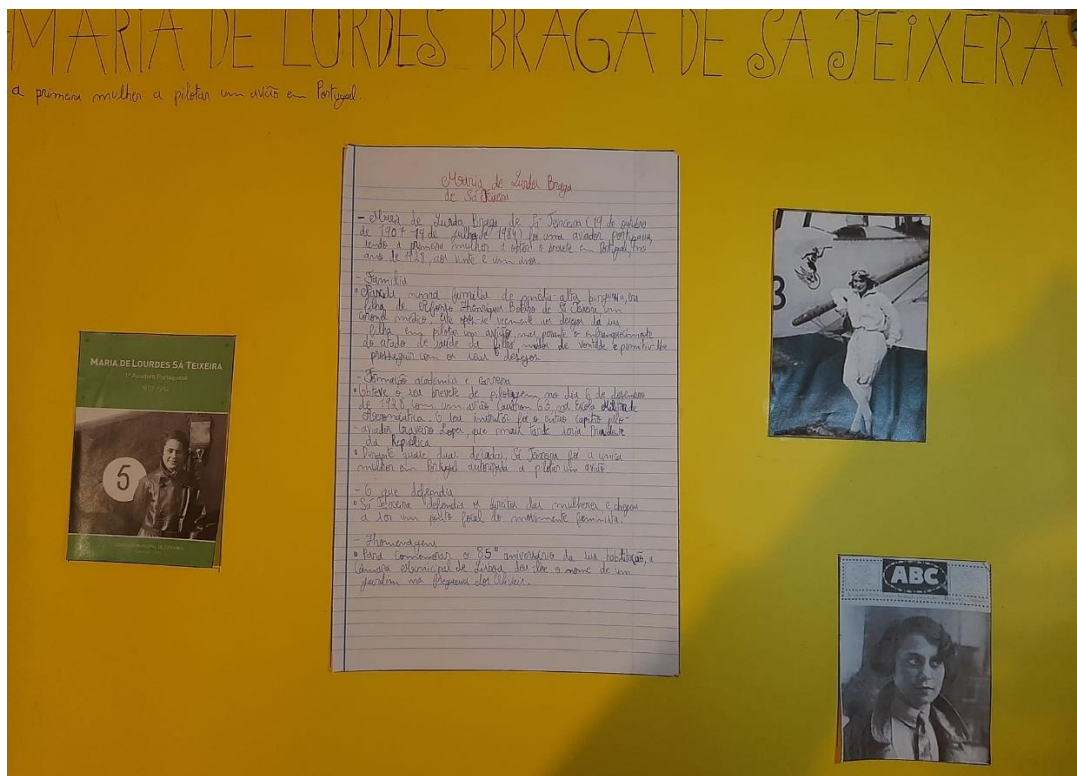 MARIA DE LURDES BRAGA DE SÁ TEIXERA
a primeira mulher a pilotar um avião em Portugal.
Maria de Lurdes Braga
de Sá Teixeira
- Maria de Lurdes Braga de Sá Teixeira (19 de outubro
de 1907 - 19 de julho de 1984) foi uma aviadora portuguesa,
sendo a primeira mulher a obter o brevete em Portugal, no
ano de 1928, aos vinte e um anos.
- Família
• Nascida numa família de média-alta burguesia, era
filha de Afonso Henriques Botelho de Sá Teixeira um
Coronel médico. Este opôs-se vemente aos desejos da sua
filha em pilotar um avião mas, perante o
do estado de saúde da filha, mudou de vontade e permitiu-lhe
prosseguir com os seus desejos
- Formação academia e carreira
• Obteve o seu brevete de pilotagem, no dia 6 de dezembro
de 1928 com um avião Caudron G3, na Escola Militar de
Aeronáutica. O seu instrutor foi o entao capitão pilo-
-aviador Craveiro Lopes, que mais tarde seria Presidente
da República
• Durante quase duas décadas, Sá Teixeira foi a única
mulher em Portugal autorizada a pilotar um avião
- O que defendia
• Sá Teixeira defendia os direitos das mulheres e chegou
a ser um ponto focal do movimento feminista.
- Homenagens
• Para comemorar o 85º aniversário da sua habilitação, a
Câmara Municipal de Lisboa deu-lhe o nome de um
jardim na freguesia dos Olivais.
MARIA DE LOURDES SÁ TEIXEIRA
1ª Aviadora Portuguesa
5
3
ABC